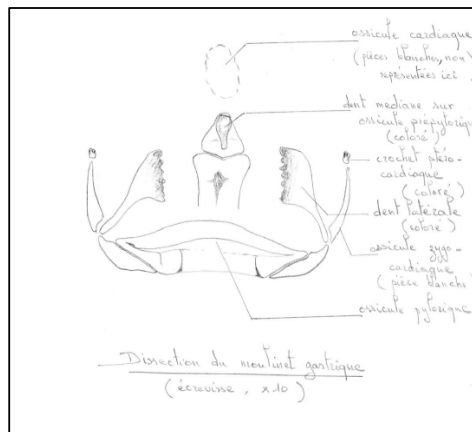 ossicule cardiaque
(pièces blanches, non
représentées ici
dent mediane sur
ossicule prépylorique
(coloré)
crochet ptéro-
cardiaque
(coloré)
dent latérale
(coloré)
ossicule zygo-
cardiaque
(pièce blanche
ossicule pylorique
Dissection du moulinet gastrique
(écrevisse, x 10)